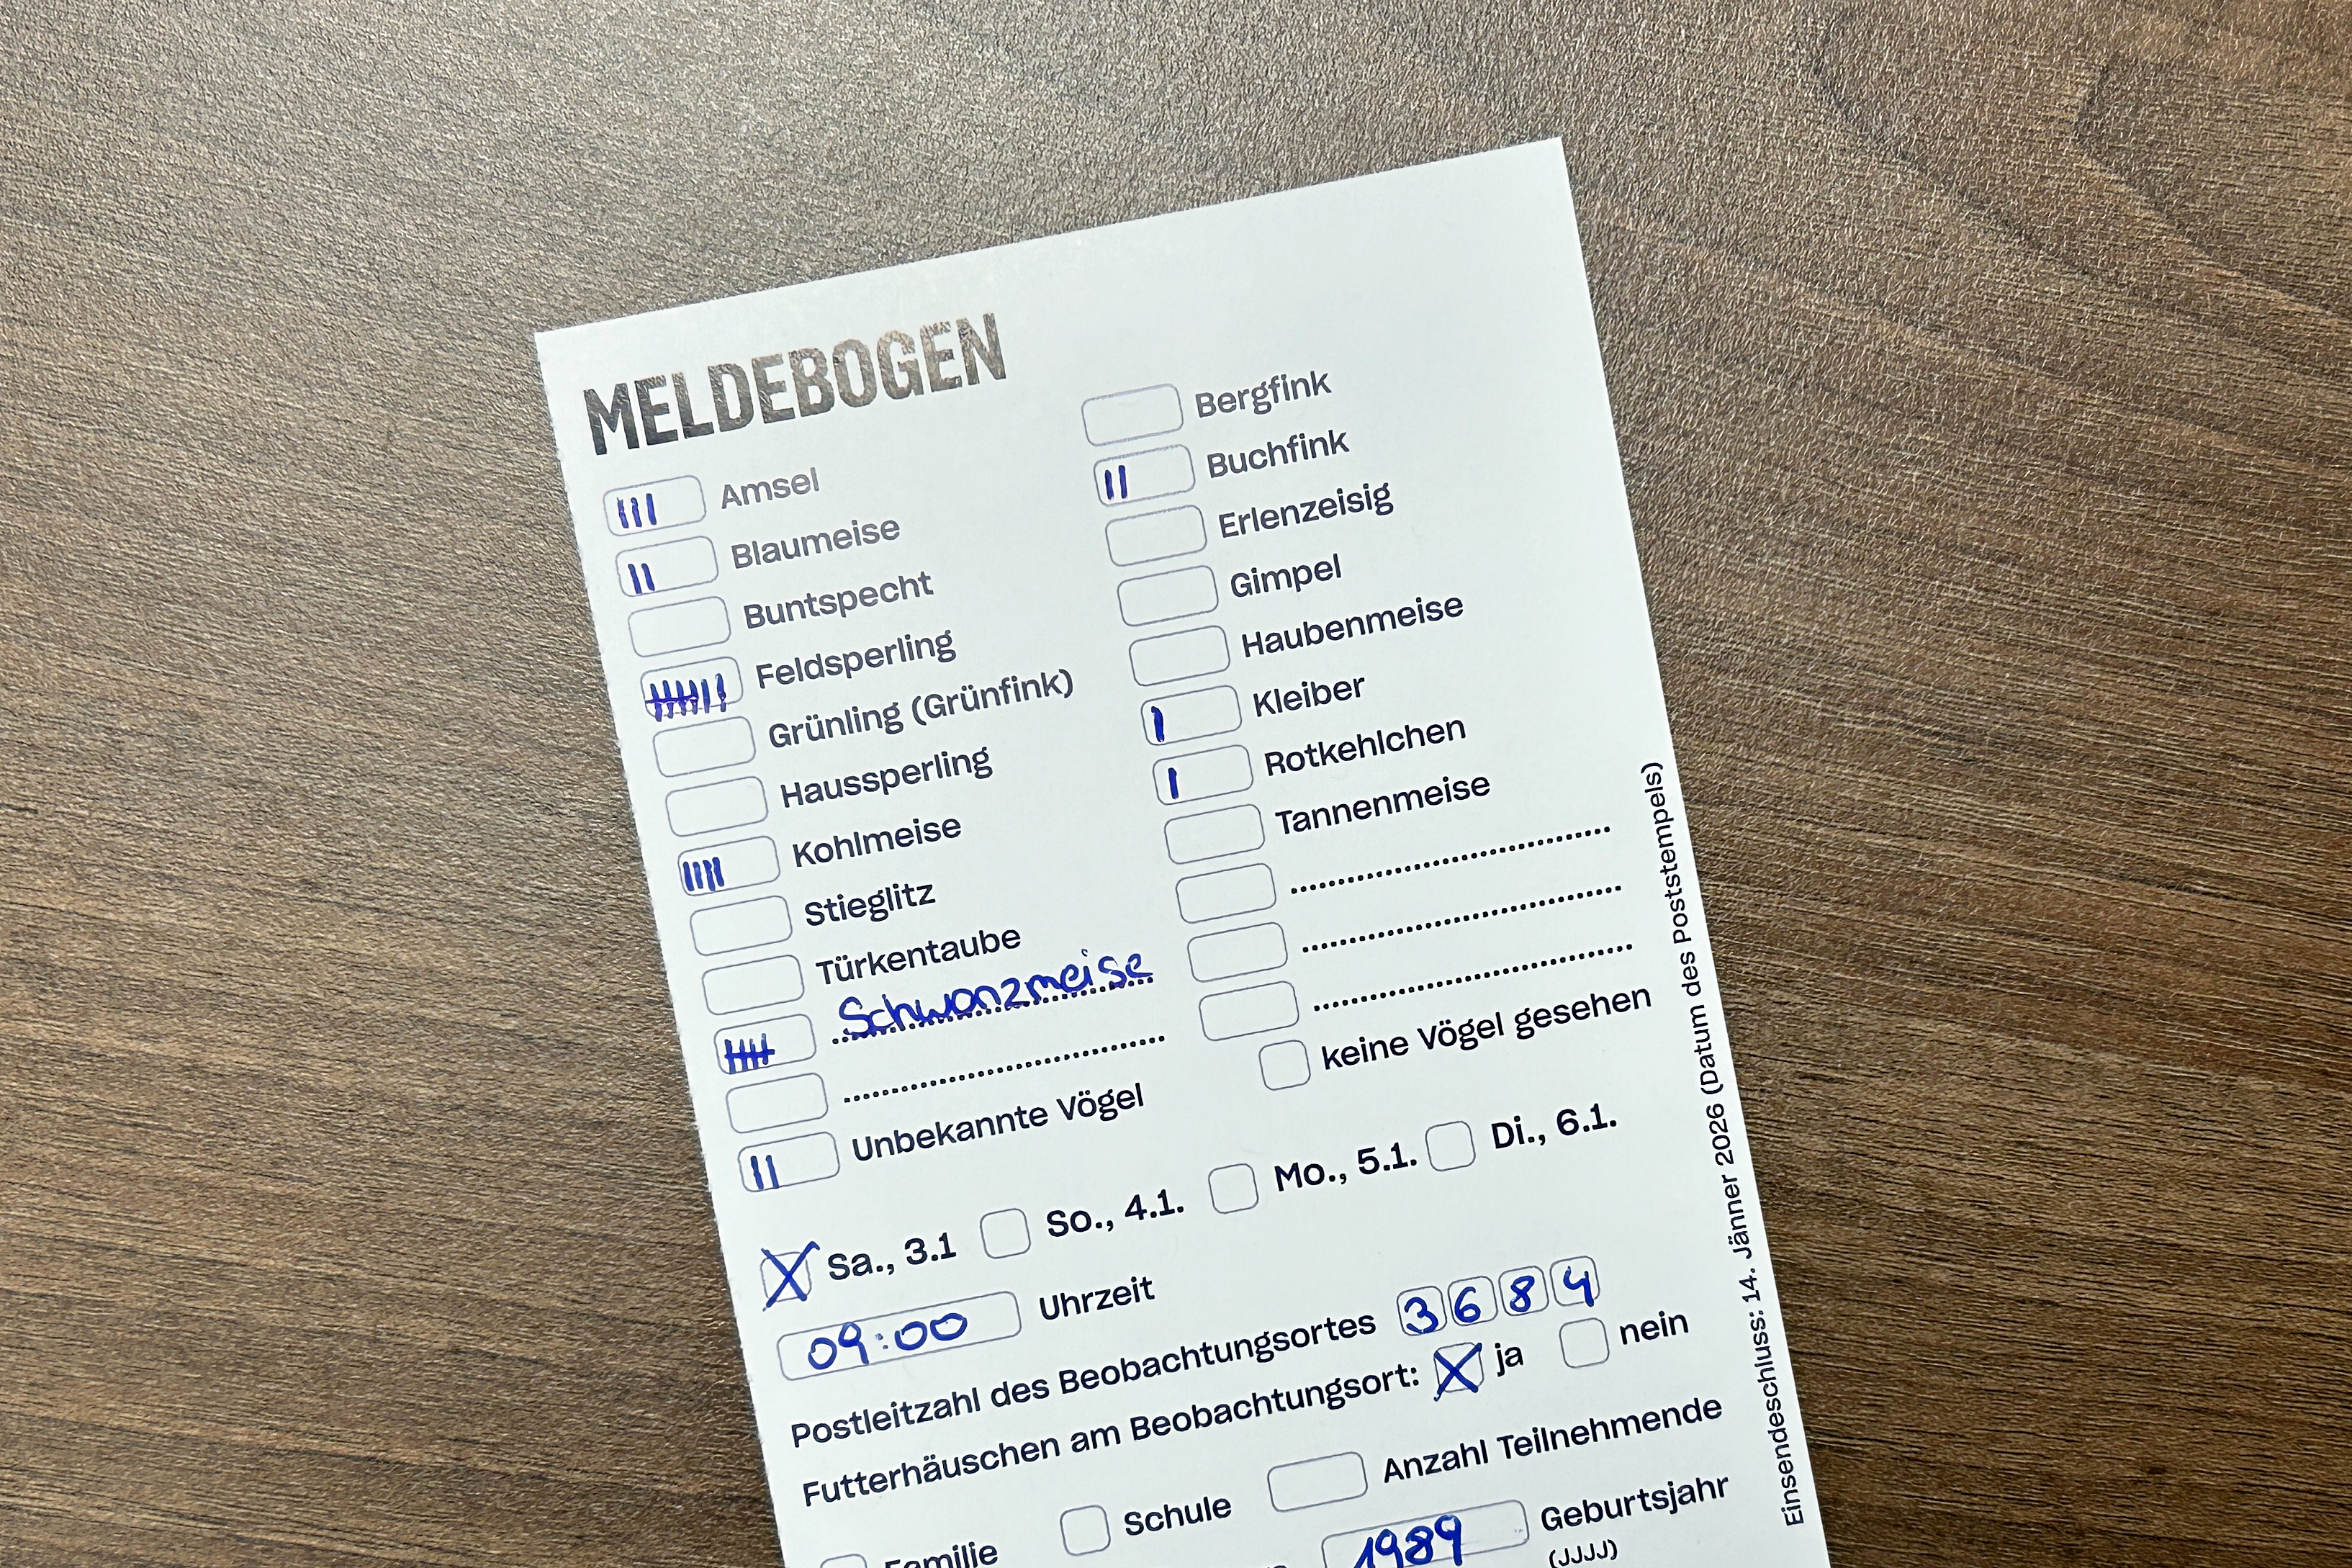 MELDEBOGEN
III Amsel
II Blaumeise
Buntspecht
Feldsperling
Grünling (Grünfink)
Haussperling
IIII Kohlmeise
Stieglitz
Türkentaube
Schwanzmeise
Unbekannte Vögel
II
Bergfink
II Buchfink
Erlenzeisig
Gimpel
Haubenmeise
I Kleiber
I Rotkehlchen
Tannenmeise
keine Vögel gesehen
X Sa., 3.1 So., 4.1. Mo., 5.1. Di., 6.1.
09:00 Uhrzeit
Postleitzahl des Beobachtungsortes 3684
Futterhäuschen am Beobachtungsort: X ja nein
Familie Schule Anzahl Teilnehmende
1989 Geburtsjahr
(JJJJ)
Einsendeschluss: 14. Jänner 2026 (Datum des Poststempels)